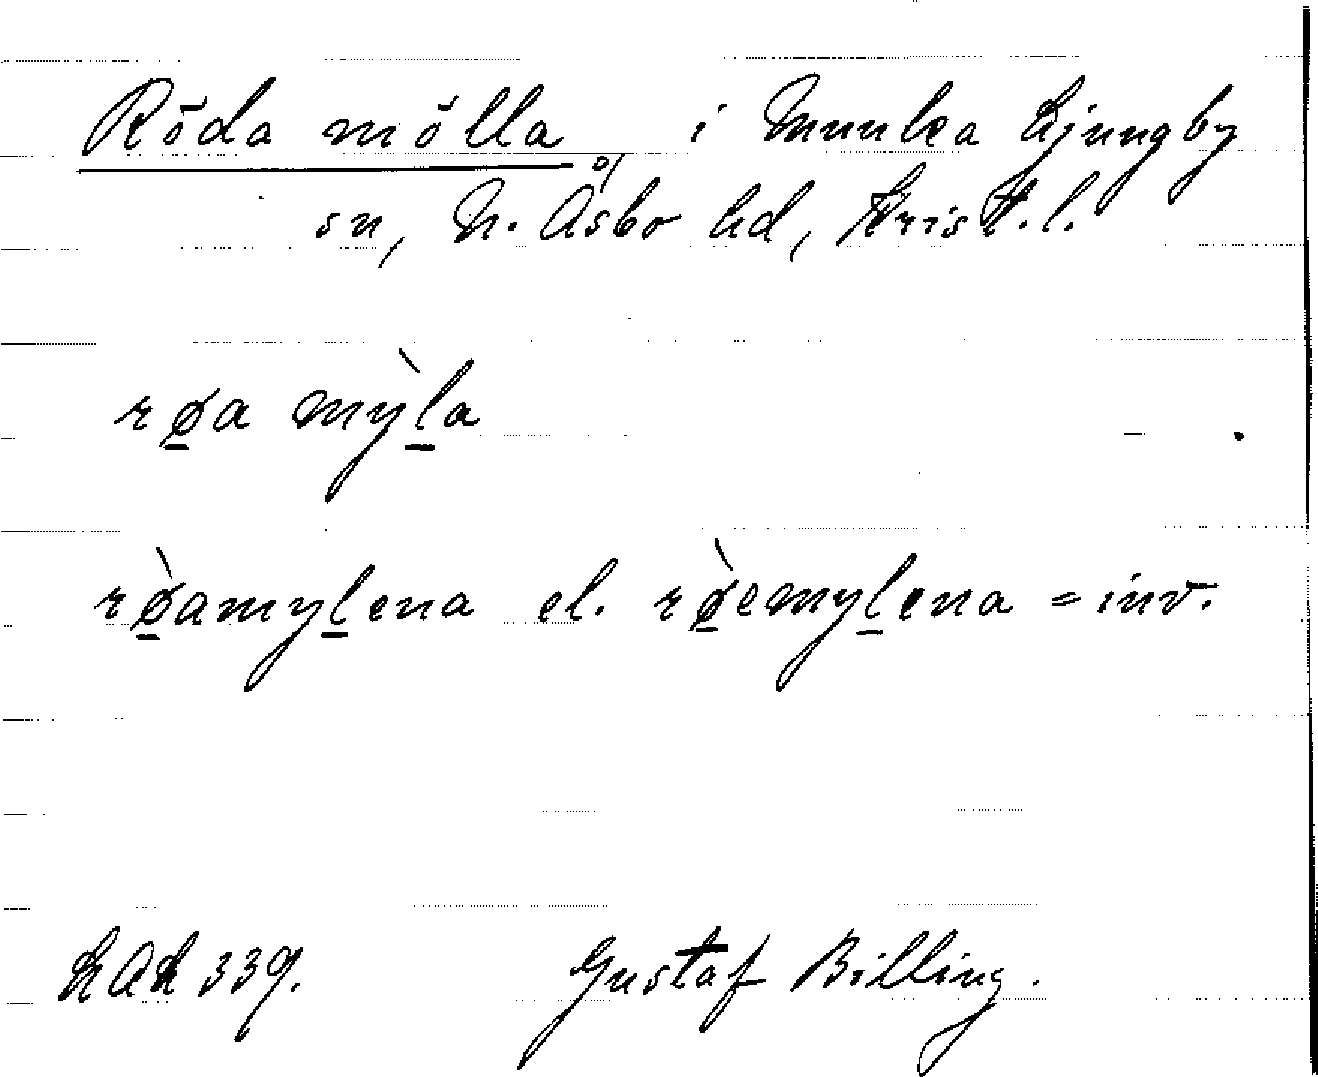 Röda mölla i Munka Ljungby
sn, N. Åsbo hd, Krist. l.
rø̱a mỳḻa
rø̱̀amyḻena el. rø̱̀emyḻena = inv.
LAL 339. Gustaf Billing.